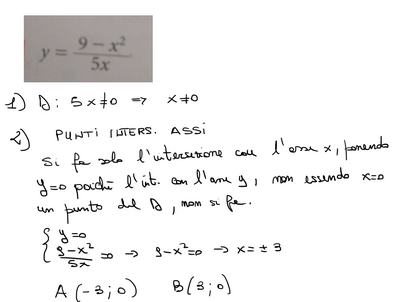 y = \frac{9 - x^2}{5x}
1) D: 5x ≠ 0 ⇒ x ≠ 0
2) PUNTI INTERS. ASSI
Si fa solo l'intersezione con l'asse x, ponendo
y=0 poiché l'int. con l'asse y, non essendo x=0
un punto del D, non si fa.
{ y=0
{ \frac{9-x^2}{5x} = 0 → 9-x^2=0 → x=±3
A (-3;0) B(3;0)